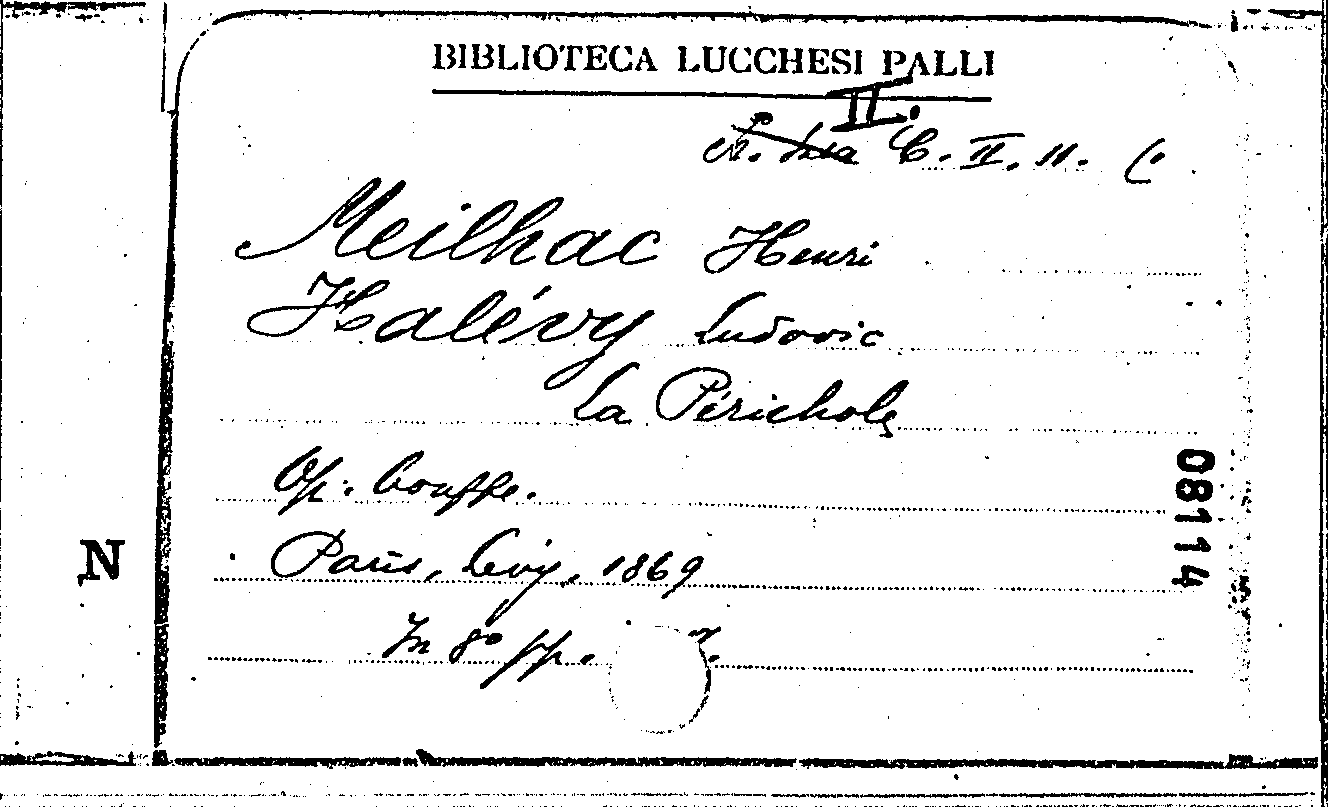 BIBLIOTECA LUCCHESI PALLI
II.
C. II. 11. (.
Meilhac Henri
Halévy Ludovic
La Périchole
Op. bouffe.
Paris, Lévy, 1869
In 8° pp.
08114
N